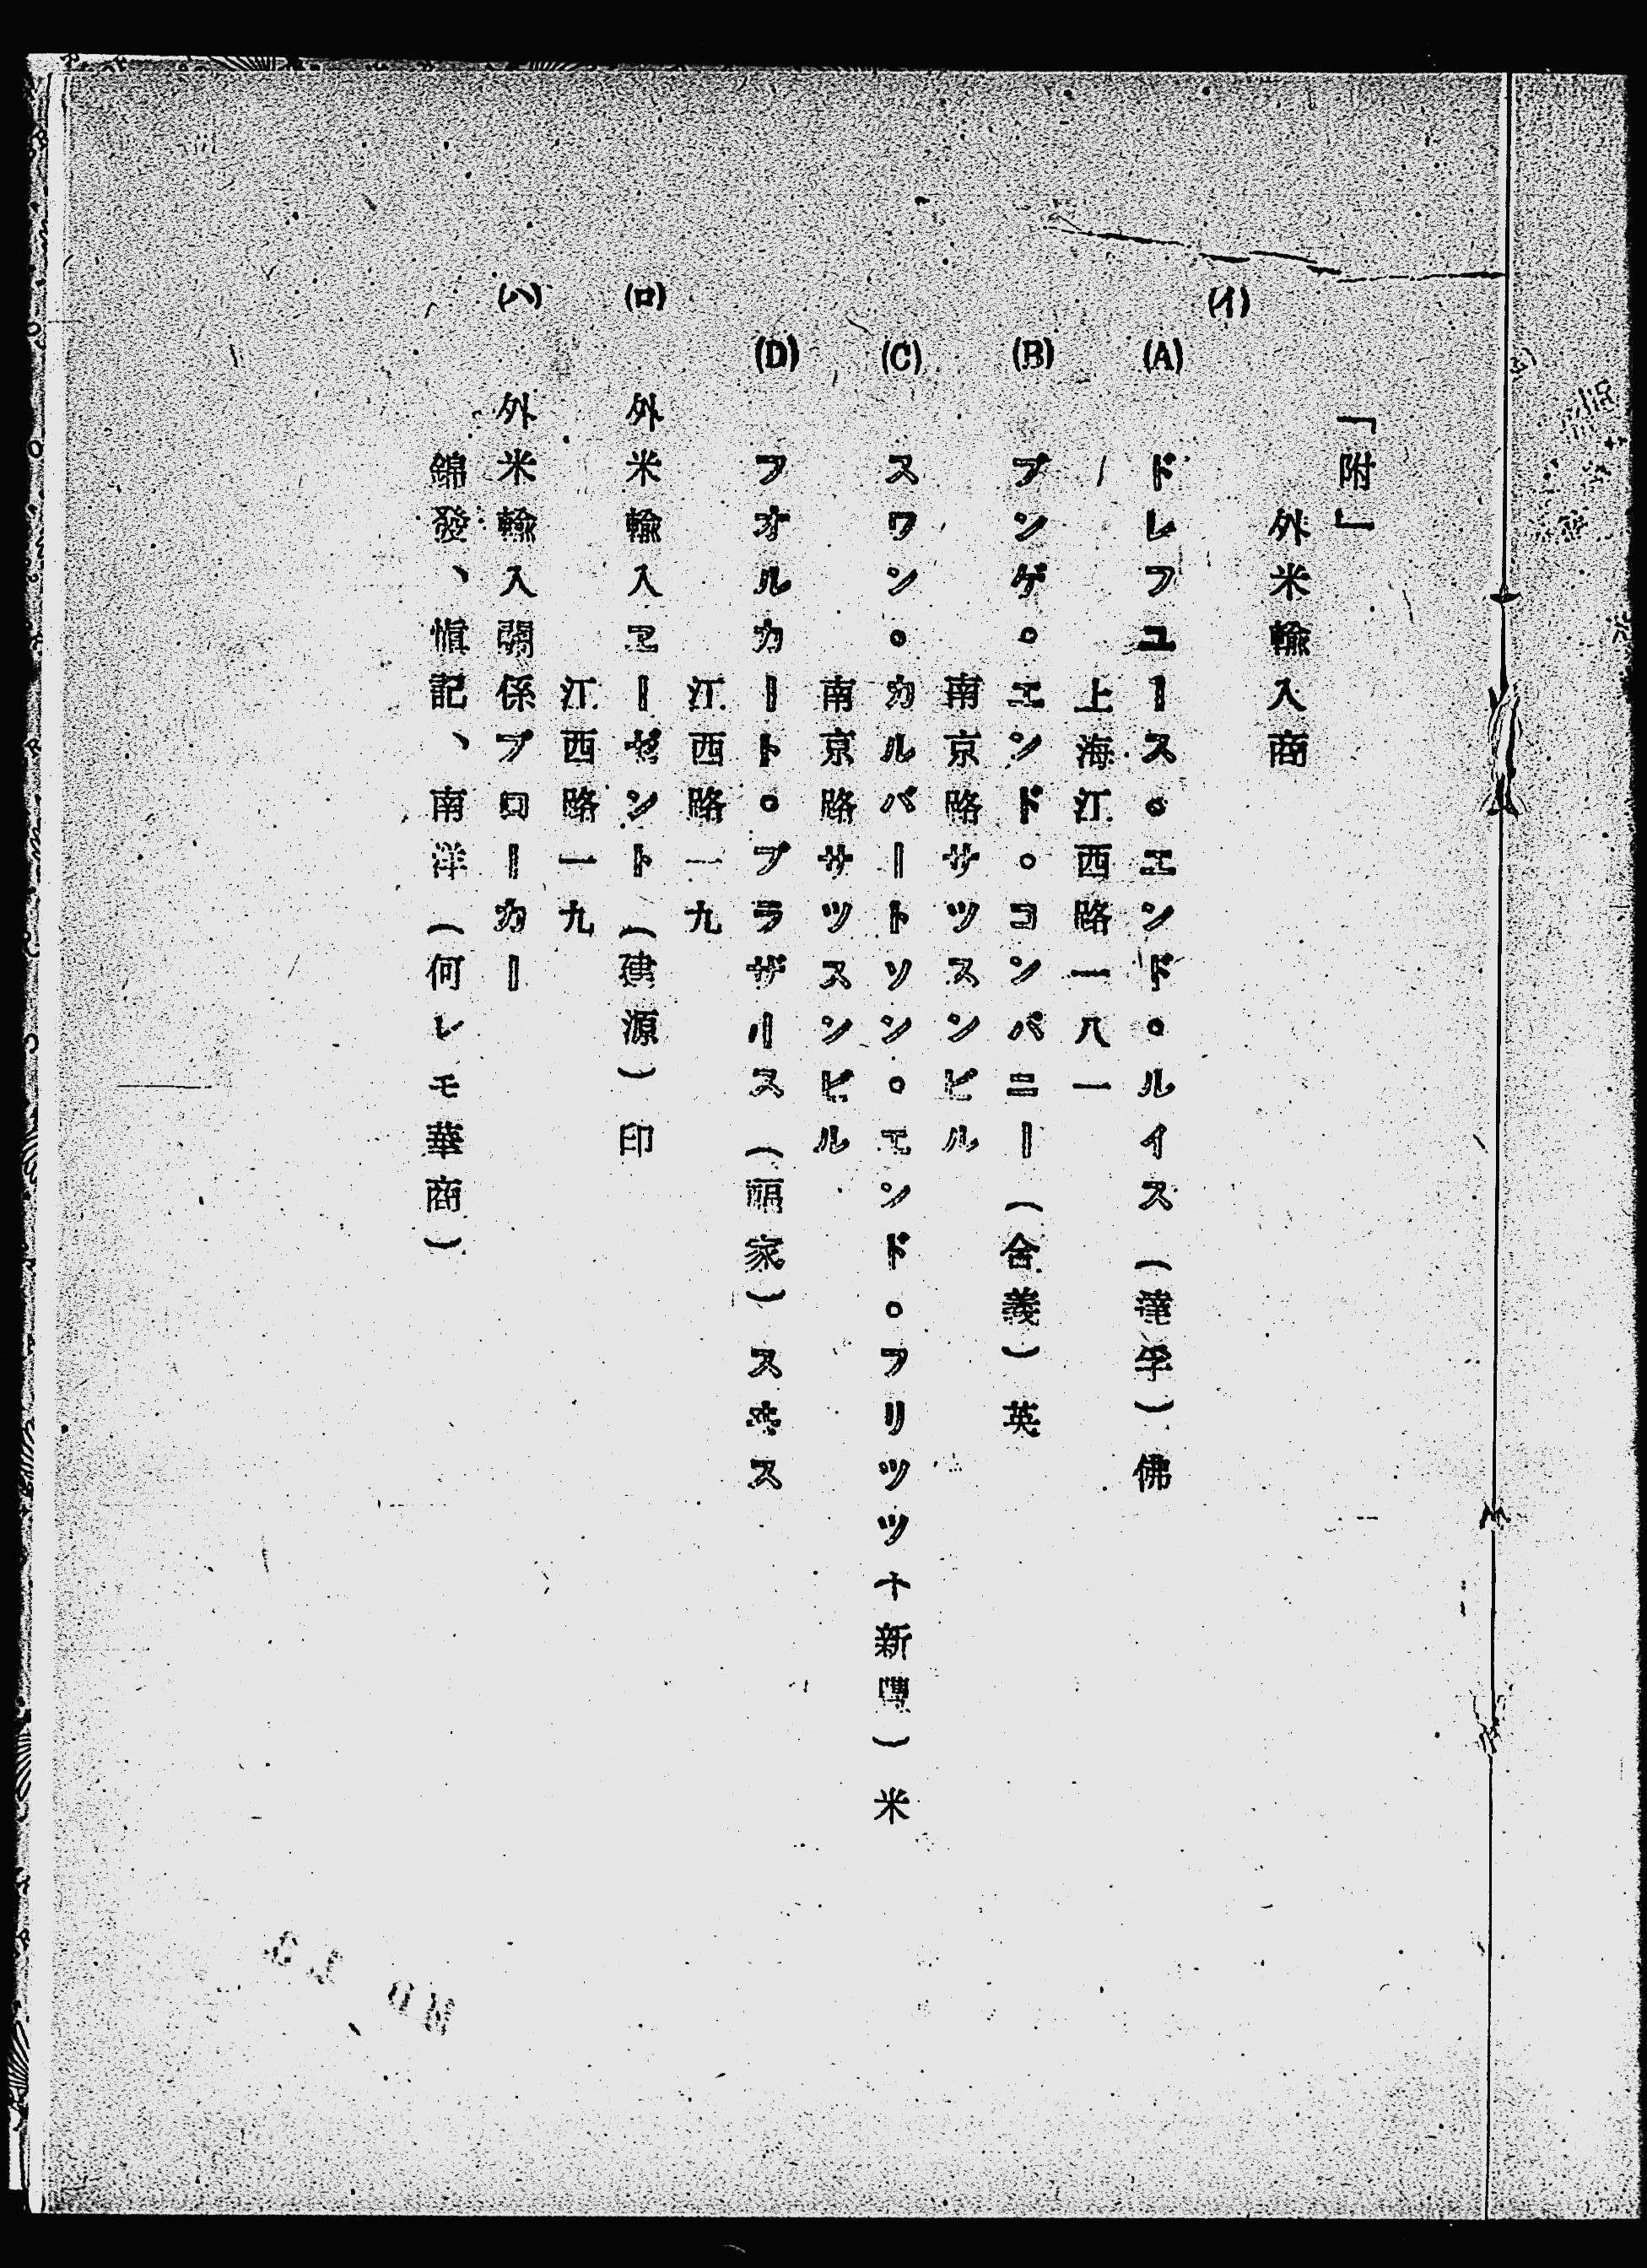 「附」
(イ) 外米輸入商
(A) ドレフユース。エンド。ルイス（達孚）佛
上海江西路一八一
(B) ブンゲ。エンド。コンパニー（合義）英
南京路サツスンビル
(C) スワン。カルバートソン。エンド。フリツツ（新豐）米
南京路サツスンビル
(D) フオルカート。ブラザース（福家）スヰス
江西路一九
(ロ) 外米輸入エーゼント（建源）印
江西路一九
(ハ) 外米輸入關係ブローカー
錦發、愼記、南洋（何レモ華商）